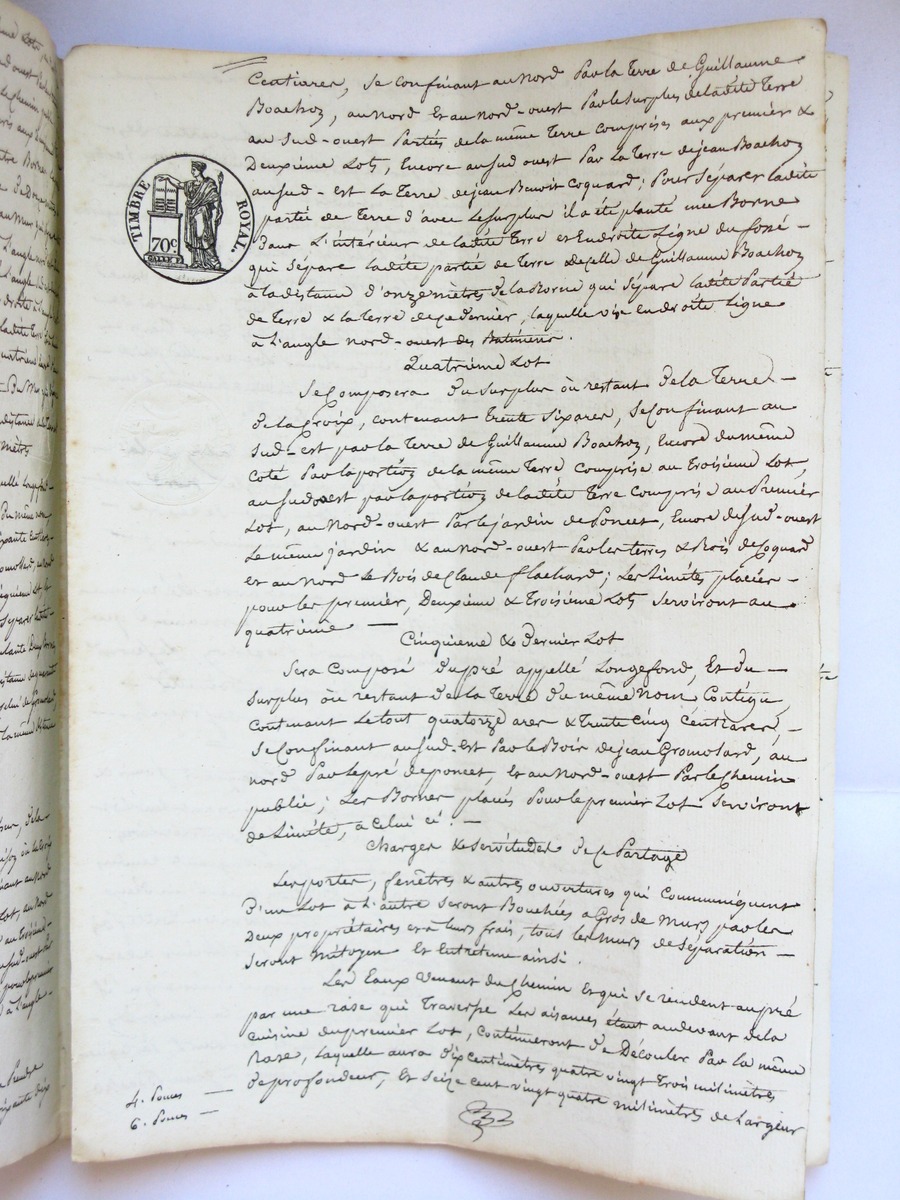 Centiares, Se confinant au nord Par la Terre de Guillaume
Boachoz, au nord Et au nord-ouest Par le surplus de la dite Terre
au Sud-ouest Parties de la même Terre comprises aux premier &
Deuxième Lots, Encore au Sud ouest Par La Terre de jean Boachoz
au Sud-est La Terre de jean Benoit Coquard; Pour Séparer la dite
partie de Terre d'avec Le surplus il a été planté une Borne
Dans L'intérieur de la dite Terre et En droite Ligne du fossé -
qui Sépare la dite partie de Terre de celle de Guillaume Boachoz
à la distance d'onze mètres de la Borne qui Sépare la dite Partie
de Terre & la Terre de ce dernier, laquelle vise en droite ligne
à L'angle nord-ouest des Batimens.
Quatrième Lot
Se Composera Du Surplus ou restant de la Terre -
De la Croix, contenant Trente Six ares, Se Confinant au
Sud-est par la Terre de Guillaume Boachoz, Encore du même
Coté Par la portion de la même Terre comprise au Troisième Lot,
au Sud ouest par la portion de la dite Terre compris au Premier
Lot, au Nord-ouest Par le jardin de Poncet, Encore de Sud-ouest
Le même jardin & au Nord-ouest Par les terres & Bois de Coquard
Et au Nord Le Bois de Claude flachard; Les Limites placées -
pour les premier, Deuxième & Troisième Lots Serviront au
quatrième —
Cinquieme & Dernier Lot
Sera Composé du pré appellé Longefond, Et du —
Surplus ou restant de la Terre du même Nom Contigu
Contenant Le tout quatorze ares & Trente Cinq Centiares, -
Se Confinant au Sud-Est Par le Bois de jean Gromolard, au
nord Par le pré de poncet, Et au Nord-ouest Par le Chemin
public; Les Bornes placés Pour le premier Lot Serviront
de Limite, à Celui ci. —
Charges & Servitudes de ce Partage
Les portes, fenêtres & autres ouvertures qui Communiquent
D'un Lot à L'autre Seront Bouchées à Gros de Murs par les
Deux propriétaires et à leurs frais, tous les murs de Séparation -
Seront mitoyen Et Entretenu ainsi.
Les Eaux venant du Chemin Et qui se rendent au pré
par une rase qui Traverse Les aisances étant au devant de la
Cuisine du premier Lot, Continueront de Découler Par la même
Rase, Laquelle aura Dix centimètres quatre vingt Trois milimètres
De profondeur, Et Seize cent vingt quatre milimètres de Largeur
4. Pouces —
6. Pouces —
TIMBRE ROYAL.
70c.